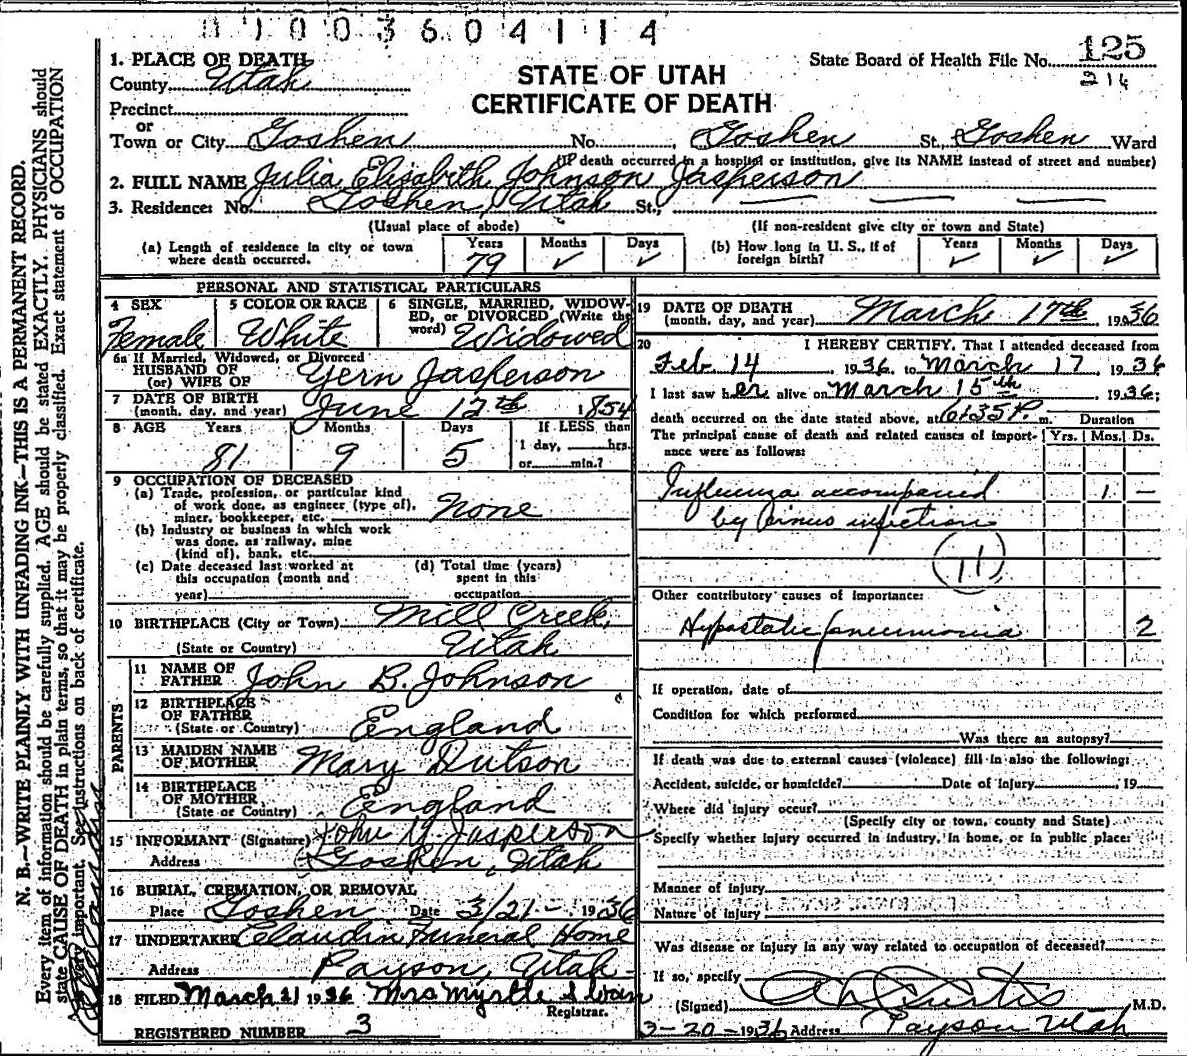 01003604114
1. PLACE OF DEATH
County Utah
Precinct
or
Town or City Goshen No. Goshen St. Goshen Ward
(IF death occurred in a hospital or institution, give its NAME instead of street and number)
STATE OF UTAH
CERTIFICATE OF DEATH
State Board of Health File No. 125
214
2. FULL NAME Julia Elizabeth Johnson Jasperson
3. Residence: No. Goshen, Utah St.,
(Usual place of abode) (If non-resident give city or town and State)
(a) Length of residence in city or town where death occurred. Years 79 Months ✓ Days ✓
(b) How long in U. S., if of foreign birth? Years ✓ Months ✓ Days ✓
PERSONAL AND STATISTICAL PARTICULARS
4 SEX Female
5 COLOR OR RACE White
6 SINGLE, MARRIED, WIDOWED, or DIVORCED (Write the word) Widowed
6a If Married, Widowed, or Divorced
HUSBAND OF
(or) WIFE OF Yern Jasperson
7 DATE OF BIRTH
(month, day, and year) June 12th 1854
8 AGE Years 81 Months 9 Days 5 If LESS than 1 day, hrs. or min.?
9 OCCUPATION OF DECEASED
(a) Trade, profession, or particular kind of work done, as engineer (type of), miner, bookkeeper, etc. None
(b) Industry or business in which work was done, as railway, mine (kind of), bank, etc.
(c) Date deceased last worked at this occupation (month and year)
(d) Total time (years) spent in this occupation
10 BIRTHPLACE (City or Town) Mill Creek,
(State or Country) Utah
PARENTS
11 NAME OF FATHER John B. Johnson
12 BIRTHPLACE OF FATHER
(State or Country) England
13 MAIDEN NAME OF MOTHER Mary Dutson
14 BIRTHPLACE OF MOTHER
(State or Country) England
15 INFORMANT (Signature) John Y. Jasperson
Address Goshen, Utah
16 BURIAL, CREMATION, OR REMOVAL
Place Goshen Date 3/21- 1936
17 UNDERTAKER Claudin Funeral Home
Address Payson, Utah
18 FILED March 21 1936 Mrs Myrtle
Registrar.
REGISTERED NUMBER 3
19 DATE OF DEATH
(month, day, and year) March 17th 1936
20 I HEREBY CERTIFY, That I attended deceased from
Feb. 14, 1936, to March 17, 1936
I last saw her alive on March 15th, 1936;
death occurred on the date stated above, at 6:35 P. m.
Duration
The principal cause of death and related causes of importance were as follows: Yrs. Mos. Ds.
Influenza accompanied 1 —
by Sinus infection
11
Other contributory causes of importance:
Hypostatic pneumonia 2
If operation, date of
Condition for which performed
Was there an autopsy?
If death was due to external causes (violence) fill in also the following:
Accident, suicide, or homicide? Date of injury, 19
Where did injury occur?
(Specify city or town, county and State)
Specify whether injury occurred in industry, in home, or in public place:
Manner of injury
Nature of injury
Was disease or injury in any way related to occupation of deceased?
If so, specify
(Signed) Curtis M.D.
3-20-1936 Address Payson Utah
N. B.—WRITE PLAINLY WITH UNFADING INK—THIS IS A PERMANENT RECORD.
Every item of information should be carefully supplied. AGE should be stated EXACTLY. PHYSICIANS should
state CAUSE OF DEATH in plain terms, so that it may be properly classified. Exact statement of OCCUPATION
is very important. See instructions on back of certificate.